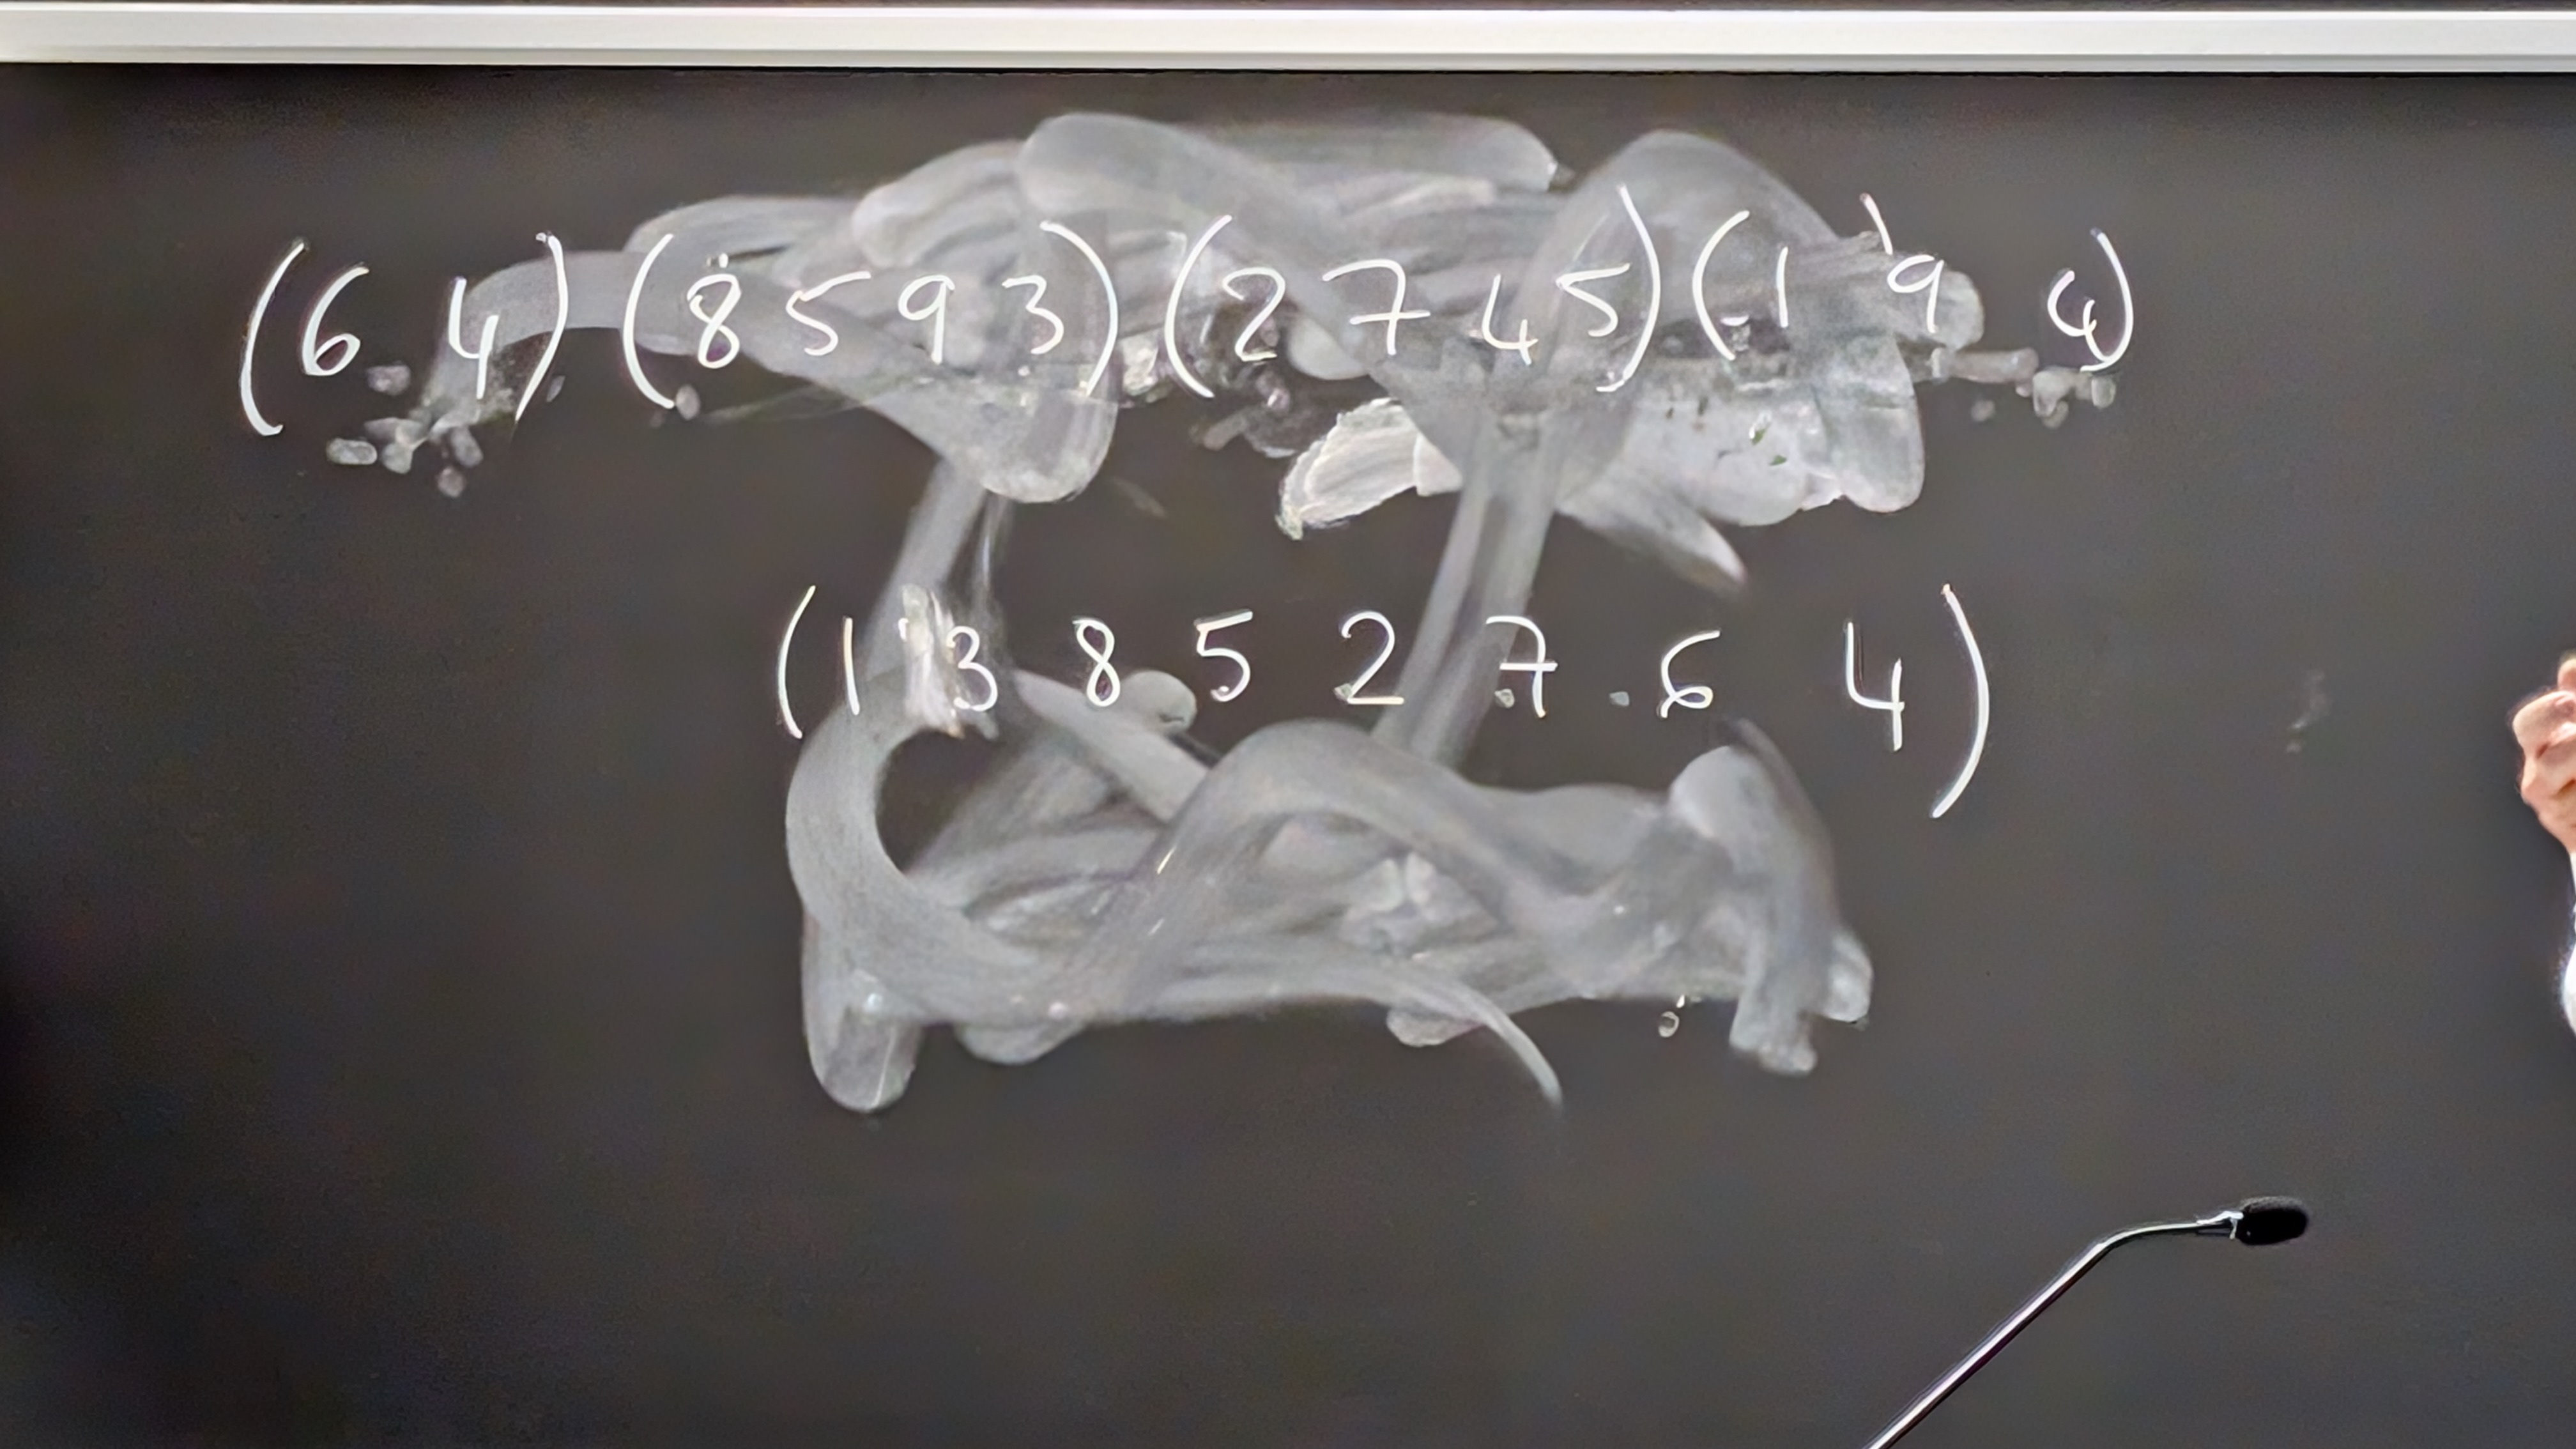 (6 4)(8 5 9 3)(2 7 4 5)(1 9 4)
(1 3 8 5 2 7 6 4)